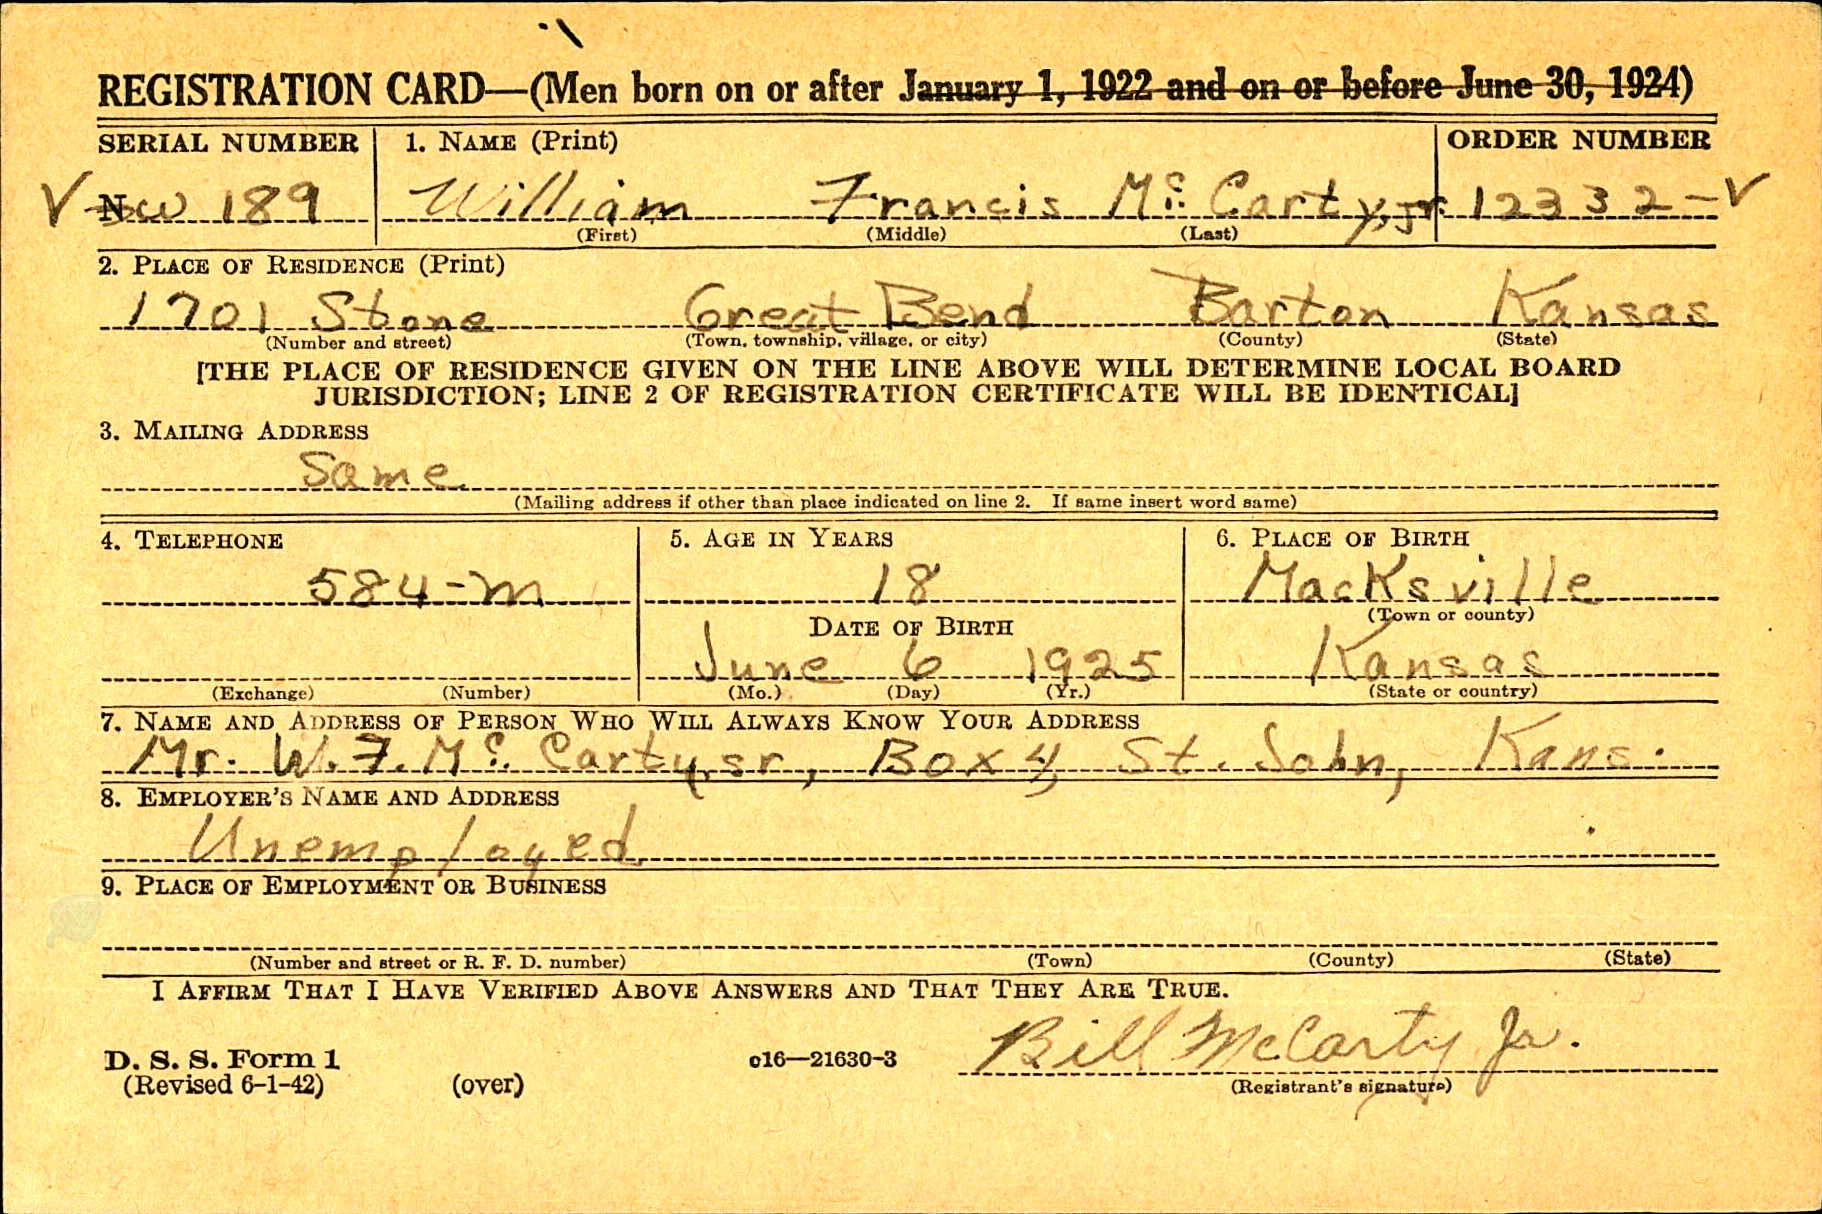 REGISTRATION CARD—(Men born on or after January 1, 1922 and on or before June 30, 1924)
SERIAL NUMBER 1. NAME (Print) ORDER NUMBER
V N W 189 William Francis Mc. Carty, jr. 12332-V
(First) (Middle) (Last)
2. PLACE OF RESIDENCE (Print)
1701 Stone Great Bend Barton Kansas
(Number and street) (Town, township, village, or city) (County) (State)
[THE PLACE OF RESIDENCE GIVEN ON THE LINE ABOVE WILL DETERMINE LOCAL BOARD
JURISDICTION; LINE 2 OF REGISTRATION CERTIFICATE WILL BE IDENTICAL]
3. MAILING ADDRESS
Same
(Mailing address if other than place indicated on line 2. If same insert word same)
4. TELEPHONE 5. AGE IN YEARS 6. PLACE OF BIRTH
584-M 18 Macksville
DATE OF BIRTH (Town or county)
June 6 1925 Kansas
(Exchange) (Number) (Mo.) (Day) (Yr.) (State or country)
7. NAME AND ADDRESS OF PERSON WHO WILL ALWAYS KNOW YOUR ADDRESS
Mr. W. F. Mc. Carty, sr, Box 4, St. John, Kans.
8. EMPLOYER'S NAME AND ADDRESS
Unemployed
9. PLACE OF EMPLOYMENT OR BUSINESS
(Number and street or R. F. D. number) (Town) (County) (State)
I AFFIRM THAT I HAVE VERIFIED ABOVE ANSWERS AND THAT THEY ARE TRUE.
Bill McCarty Jr.
D. S. S. Form 1 c16—21630-3
(Revised 6-1-42) (over) (Registrant's signature)